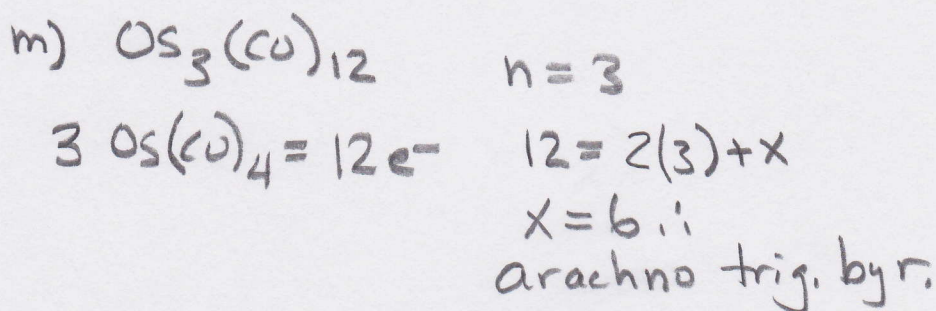 m) Os₃(CO)₁₂
n = 3
3 Os(CO)₄ = 12e⁻
12 = 2(3) + x
x = 6 ∴
arachno trig. byr.